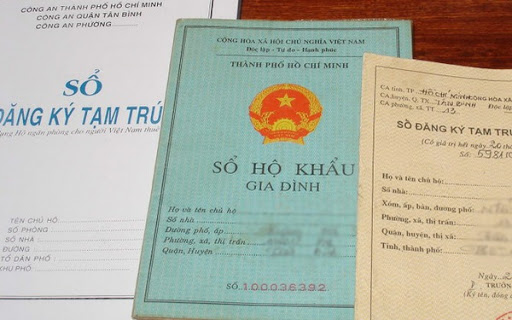 CÔNG AN THÀNH PHỐ HỒ CHÍ MINH
CÔNG AN QUẬN TÂN BÌNH
CÔNG AN PHƯỜNG
SỔ
ĐĂNG KÝ TẠM TRÚ
TÊN CHỦ HỘ
SỐ PHÒNG
SỐ NHÀ
ĐƯỜNG
TỔ DÂN PHỐ
KHU PHỐ
CỘNG HÒA XÃ HỘI CHỦ NGHĨA VIỆT NAM
Độc lập - Tự do - Hạnh phúc
THÀNH PHỐ HỒ CHÍ MINH
SỔ HỘ KHẨU
GIA ĐÌNH
Họ và tên chủ hộ
Số nhà
Đường phố, ấp
Phường, xã, thị trấn
Quận, Huyện
SỐ 100036392
CA tỉnh, TP HỒ CHÍ MINH
CỘNG HÒA XÃ
CA huyện, Q, TX TÂN BÌNH
Độc lập
CA phường, xã, TT 13
SỔ ĐĂNG KÝ TẠM TRÚ
(Có giá trị hết ngày 20 thá
Số: 5981
Họ và tên chủ hộ:
Số nhà:
Xóm, ấp, bản, đường phố:
Phường, xã, thị trấn:
Quận, huyện, thị xã:
Tỉnh, thành phố:
Ngày 2
TRƯỞNG
(Ký tên, đóng